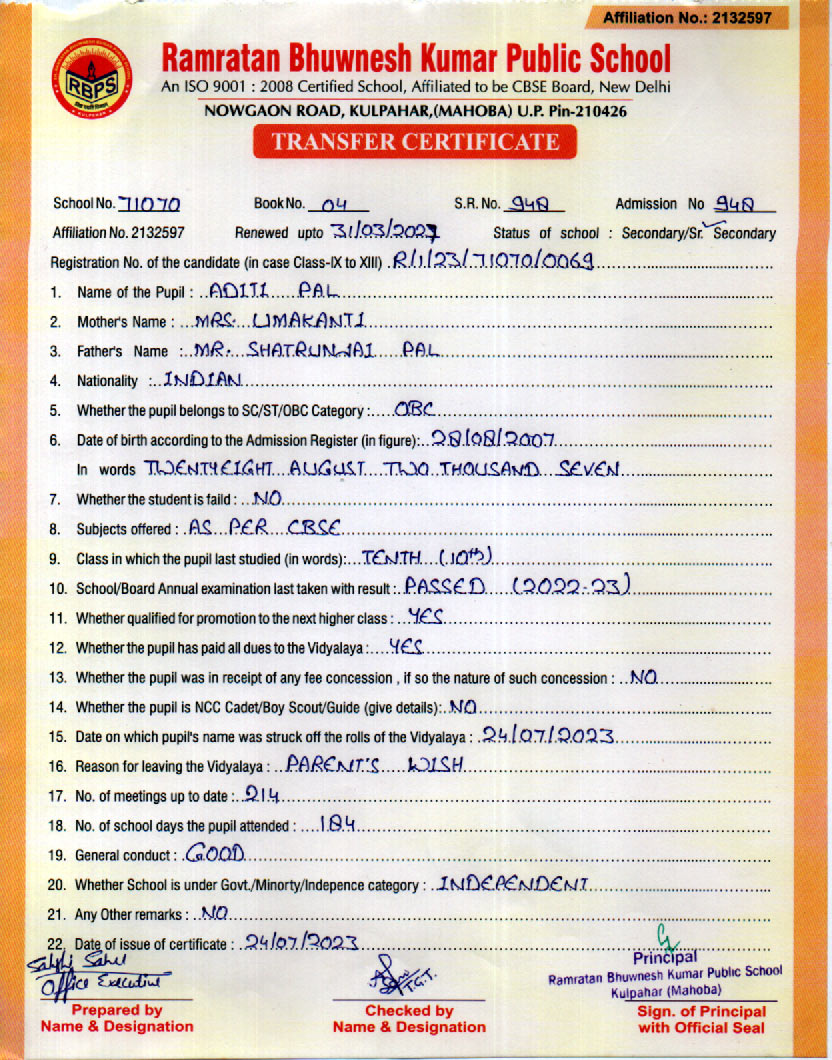 Affiliation No.: 2132597
Ramratan Bhuwnesh Kumar Public School
RBPS
KULPAHAR
An ISO 9001 : 2008 Certified School, Affiliated to be CBSE Board, New Delhi
NOWGAON ROAD, KULPAHAR,(MAHOBA) U.P. Pin-210426
TRANSFER CERTIFICATE
School No. 71070 Book No. 04 S.R. No. 948 Admission No 948
Affiliation No. 2132597 Renewed upto 31/03/2027 Status of school : Secondary/Sr. Secondary
Registration No. of the candidate (in case Class-IX to XIII) R/1/23/71070/0069
1. Name of the Pupil : ADITI PAL
2. Mother's Name : MRS. UMAKANTI
3. Father's Name : MR. SHATRUNJAI PAL
4. Nationality : INDIAN
5. Whether the pupil belongs to SC/ST/OBC Category : OBC
6. Date of birth according to the Admission Register (in figure): 28/08/2007
In words TWENTYEIGHT AUGUST TWO THOUSAND SEVEN
7. Whether the student is faild : NO
8. Subjects offered : AS PER CBSE
9. Class in which the pupil last studied (in words): TENTH (10th)
10. School/Board Annual examination last taken with result : PASSED (2022-23)
11. Whether qualified for promotion to the next higher class : YES
12. Whether the pupil has paid all dues to the Vidyalaya : YES
13. Whether the pupil was in receipt of any fee concession , if so the nature of such concession : NO
14. Whether the pupil is NCC Cadet/Boy Scout/Guide (give details): NO
15. Date on which pupil's name was struck off the rolls of the Vidyalaya : 24/07/2023
16. Reason for leaving the Vidyalaya : PARENT'S WISH
17. No. of meetings up to date : 214
18. No. of school days the pupil attended : 184
19. General conduct : GOOD
20. Whether School is under Govt./Minorty/Indepence category : INDEPENDENT
21. Any Other remarks : NO
22. Date of issue of certificate : 24/07/2023
Office Executive
T.G.T.
Principal
Ramratan Bhuwnesh Kumar Public School
Kulpahar (Mahoba)
Prepared by
Name & Designation
Checked by
Name & Designation
Sign. of Principal
with Official Seal